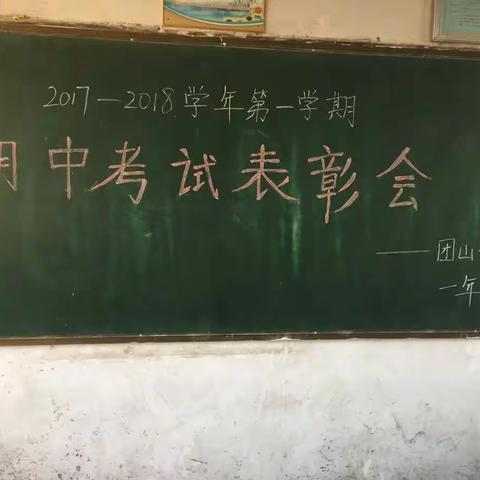 2017—2018学年第一学期
期中考试表彰会
——团山
一年